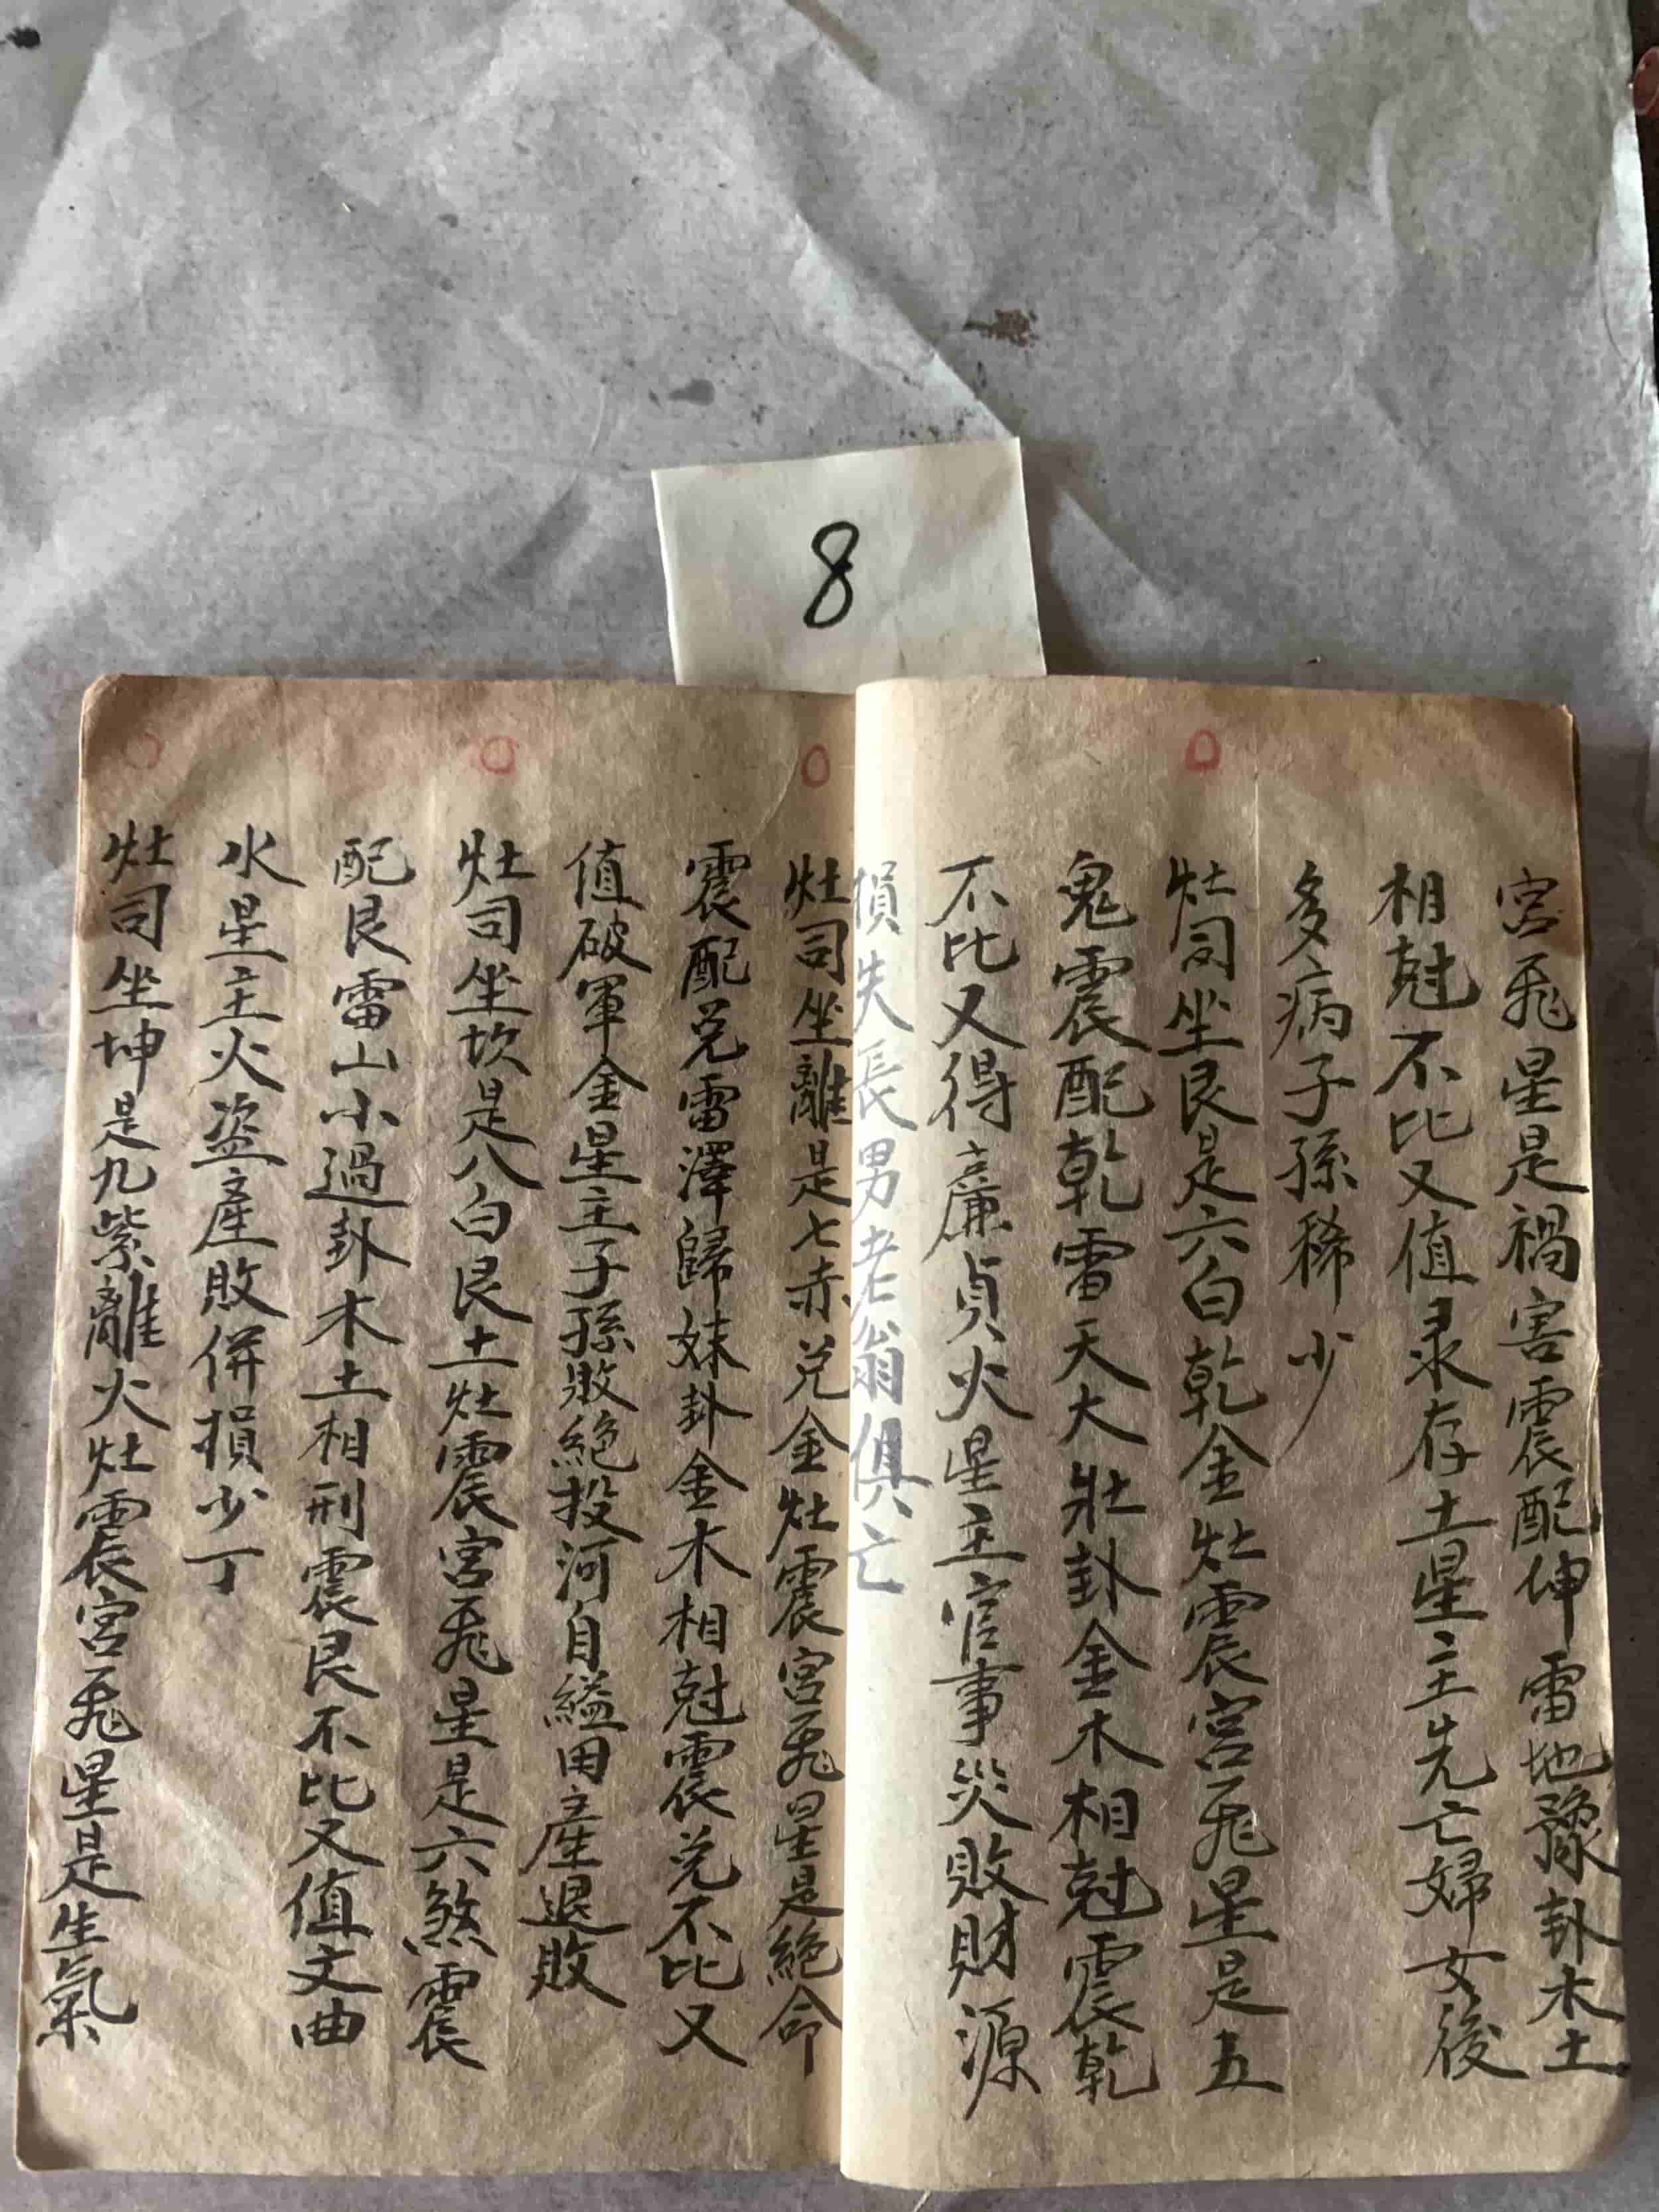 8
宮飛星是禍害震配伸雷地豫卦木土
相尅不比又值彔存土星主先亡婦女後
多病子孫稀少
灶司坐艮是六白乾金灶震宮飛星是五
鬼震配乾雷天大壯卦金木相尅震乾
不比又得廉貞火星主官事災敗財源
損失長男老翁俱亡
灶司坐離是七赤兑金灶震宮飛星是絕命
震配兑雷澤歸妹卦金木相尅震兑不比又
值破軍金星主子孫敗絕投河自縊田產退敗
灶司坐坎是八白艮土灶震宮飛星是六煞震
配艮雷山小過卦木土相刑震艮不比又值文曲
水星主火盗產敗併損少丁
灶司坐坤是九紫離火灶震宮飛星是生氣